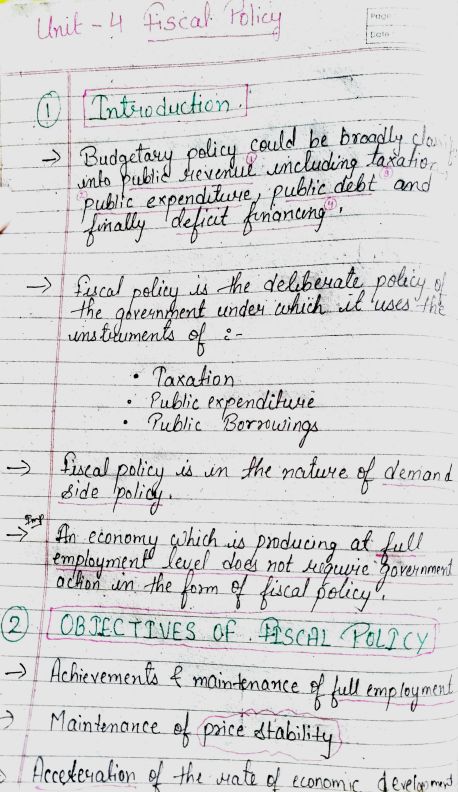 Unit - 4 Fiscal Policy
Page
Date
① Introduction.
→ Budgetary policy could be broadly
into public revenue ① including taxation
② public expenditure, public debt ③ and
finally deficit financing ④.
→ Fiscal policy is the deliberate policy of
the government under which it uses the
instruments of :-
• Taxation
• Public expenditure
• Public Borrowings
→ Fiscal policy is in the nature of demand
side policy.
Imp
→ An economy which is producing at full
employment level does not require government
action in the form of fiscal policy.
② OBJECTIVES OF FISCAL POLICY
→ Achievements & maintenance of full employment
→ Maintenance of price stability
→ Acceleration of the rate of economic development